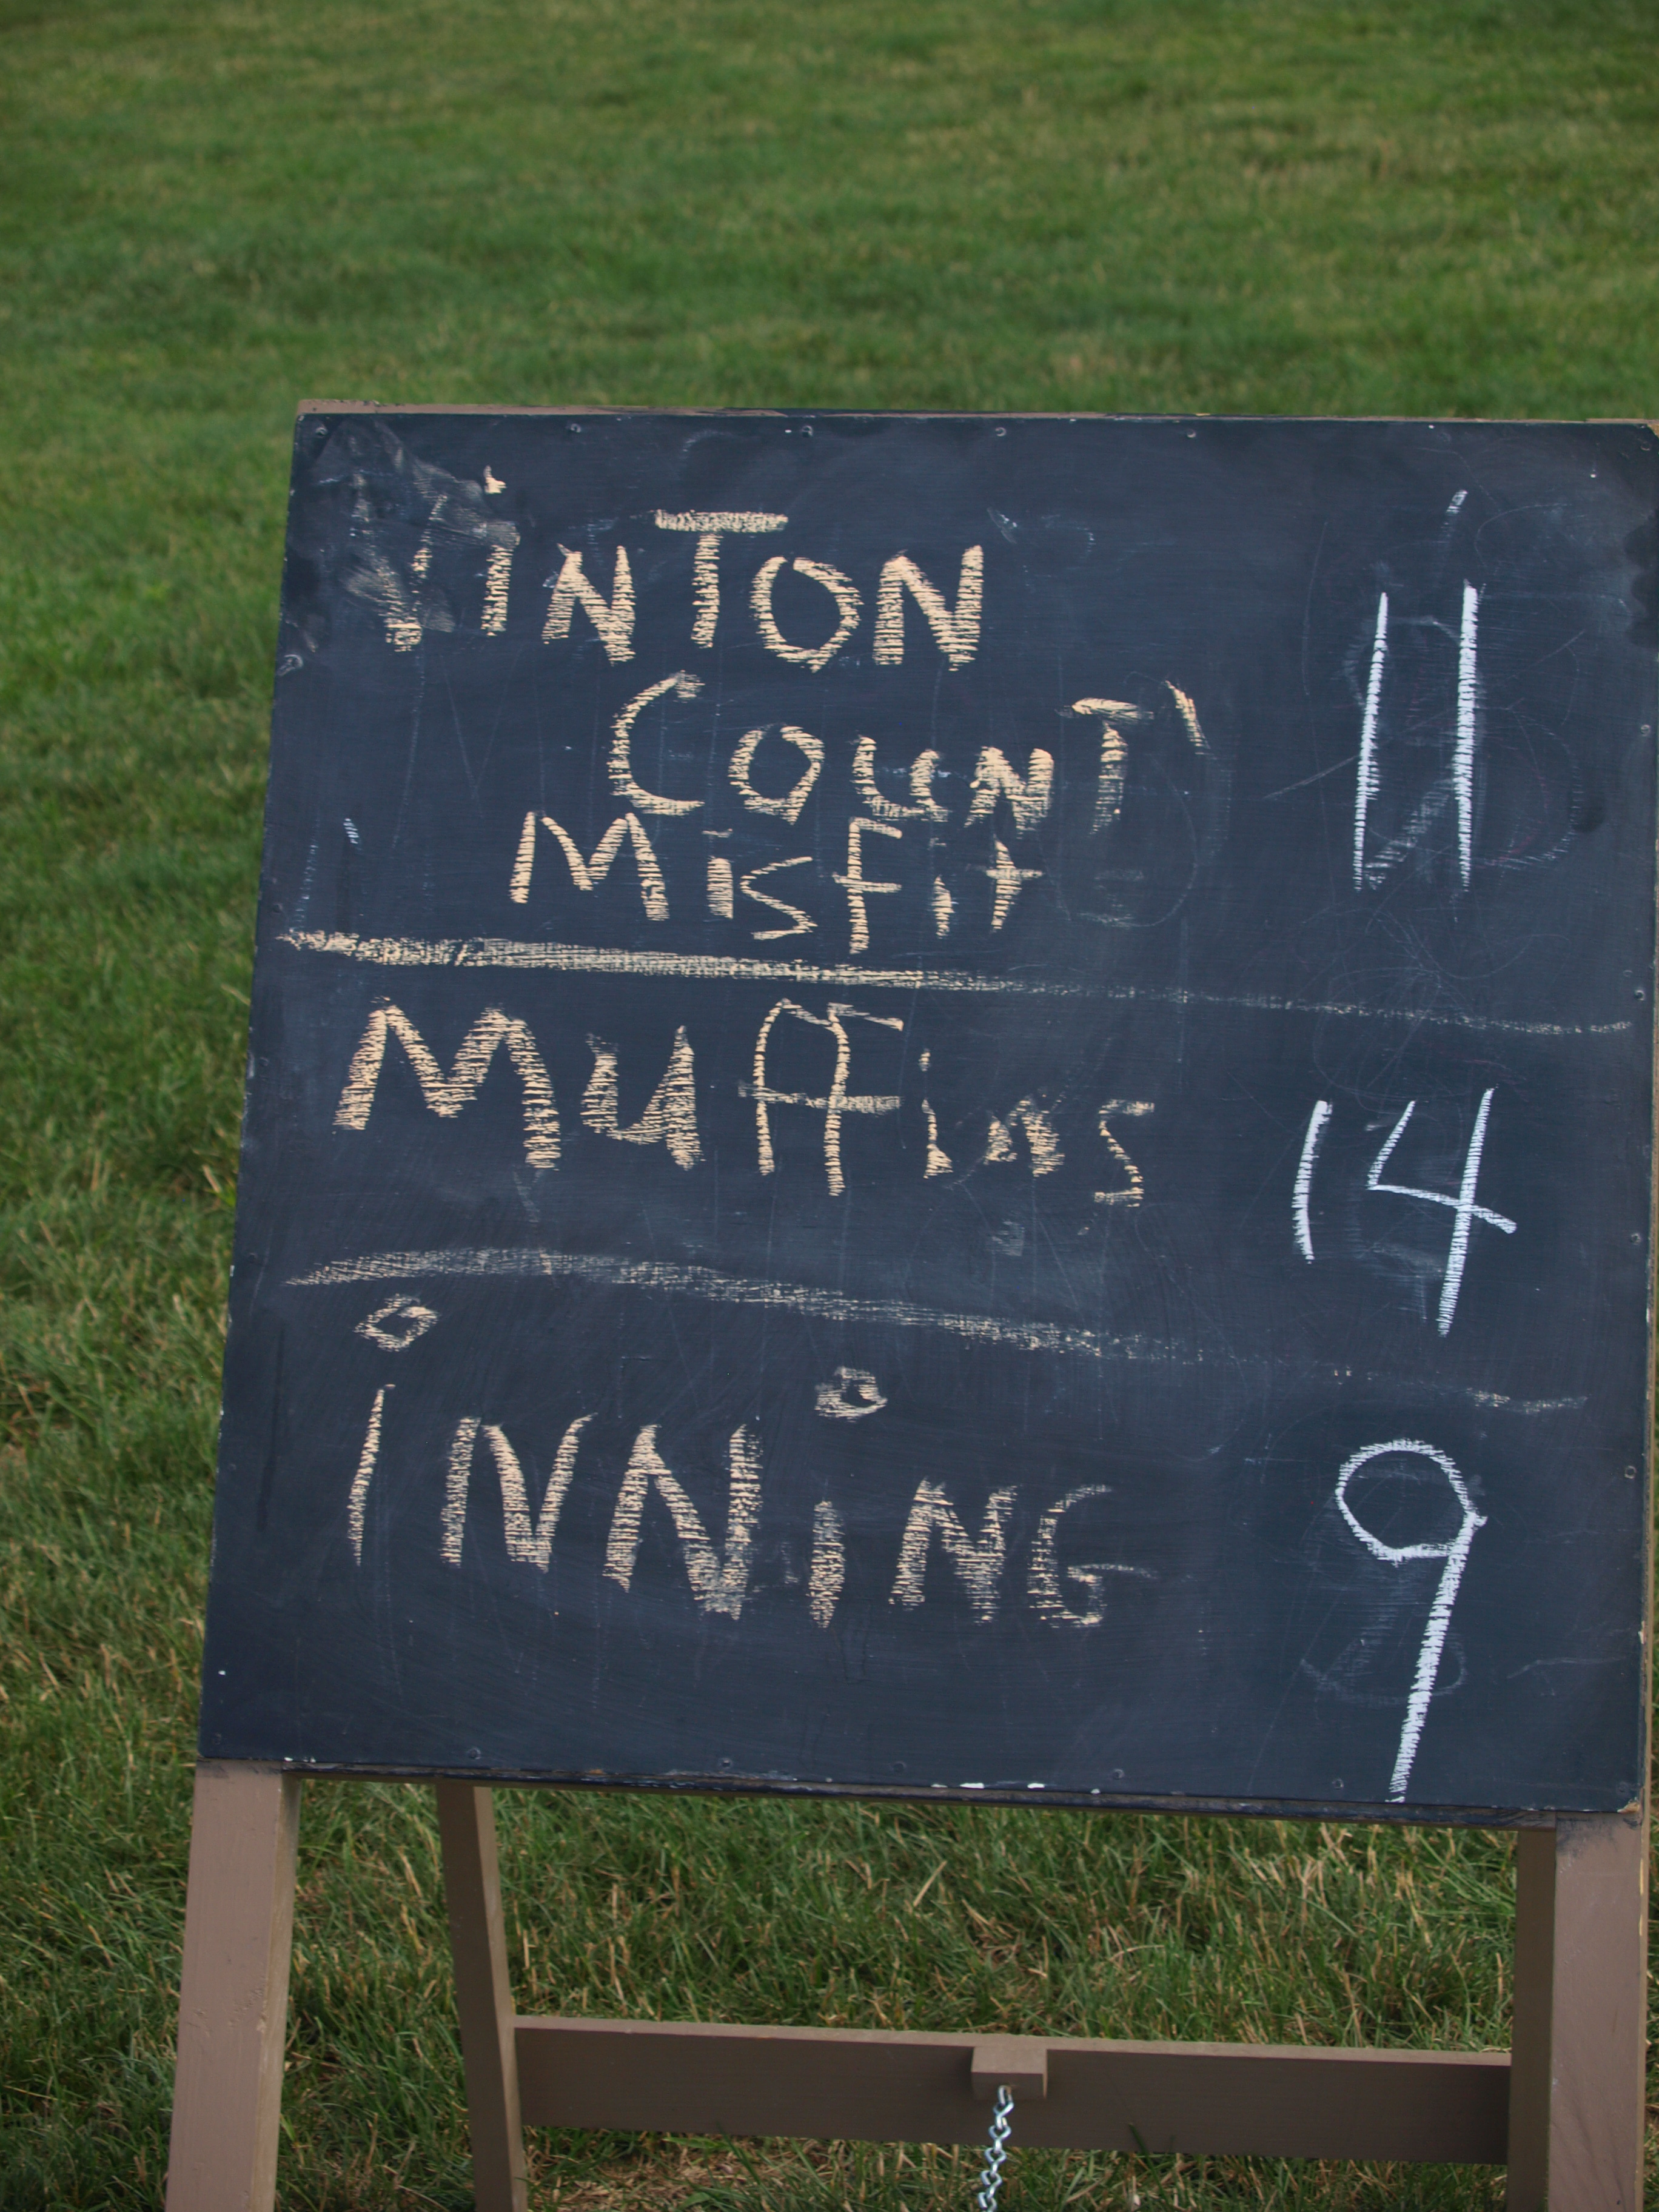 ViNTON 11
COUNTY
MisFit
Muffins 14
iNNiNG 9